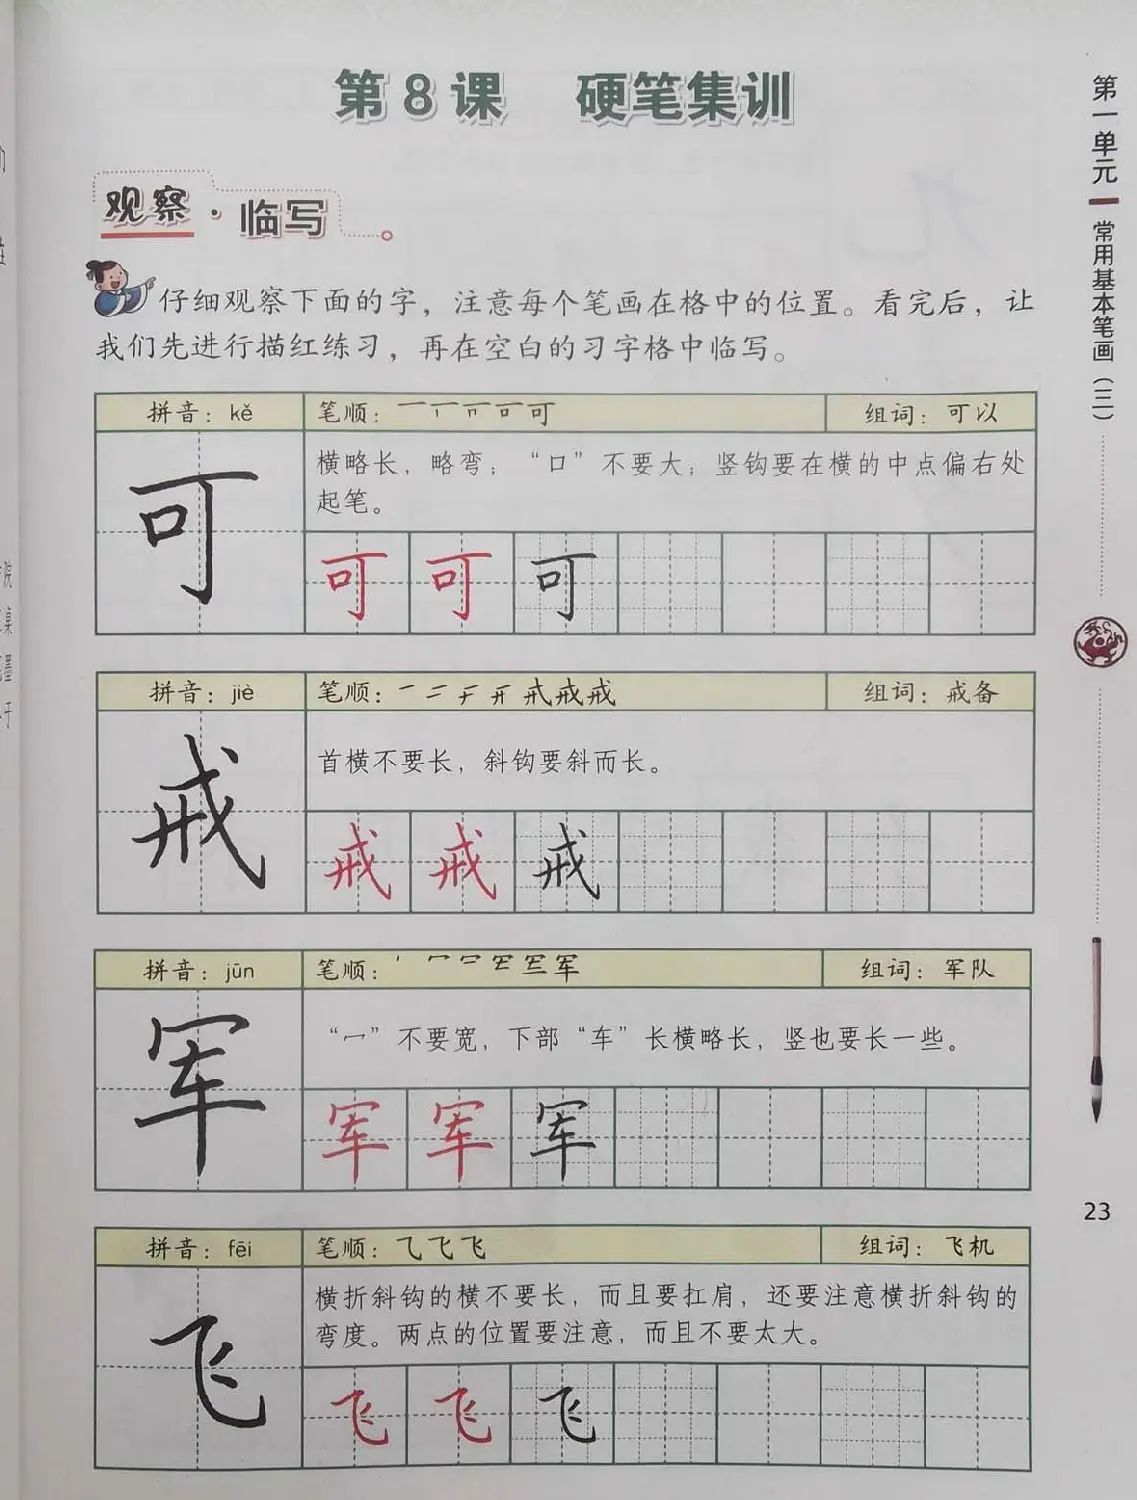 第8课 硬笔集训
观察·临写
仔细观察下面的字，注意每个笔画在格中的位置。看完后，让
我们先进行描红练习，再在空白的习字格中临写。
拼音：kě 笔顺： 可 组词：可以
可
横略长，略弯；“口”不要大；竖钩要在横的中点偏右处
起笔。
可 可 可
拼音：jiè 笔顺： 戒 组词：戒备
戒
首横不要长，斜钩要斜而长。
戒 戒 戒
拼音：jūn 笔顺： 军 组词：军队
军
“冖”不要宽，下部“车”长横略长，竖也要长一些。
军 军 军
拼音：fēi 笔顺：飞 组词：飞机
飞
横折斜钩的横不要长，而且要扛肩，还要注意横折斜钩的
弯度。两点的位置要注意，而且不要太大。
飞 飞 飞
第一单元
常用基本笔画（三）
23